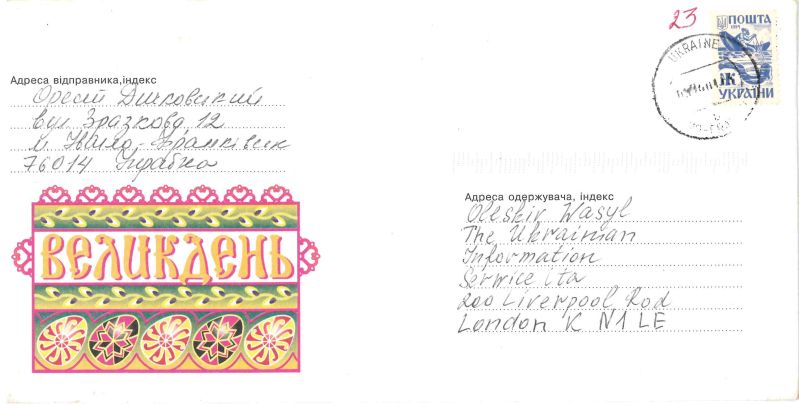 23
UKRAINE
ПОШТА
1994
УКРАЇНИ
Адреса відправника,індекс
Орест Дичковський
вул. Зразкова, 12
м. Івано-Франківськ
76014 Україна
ВЕЛИКДЕНЬ
Адреса одержувача, індекс
Oleskiv Wasyl
The Ukrainian
Information
Serwice Lta
200 Liverpool Rod
London K N1 LE